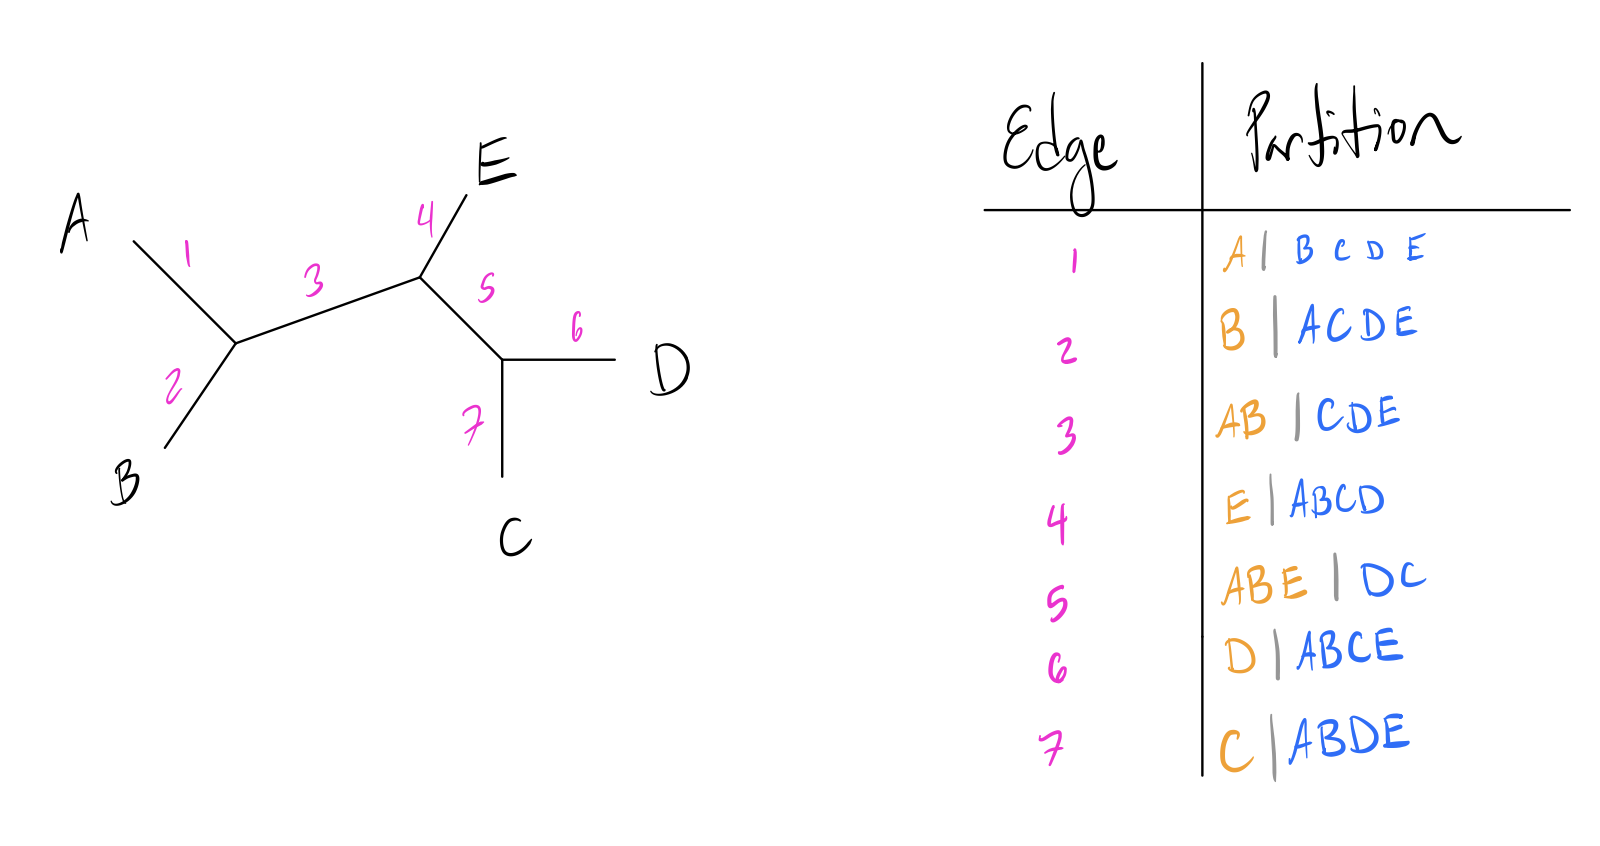 E
A
1
4
3
5
6
D
2
7
B
C
Edge Partition
1 A | B C D E
2 B | ACDE
3 AB | CDE
4 E | ABCD
5 ABE | DC
6 D | ABCE
7 C | ABDE